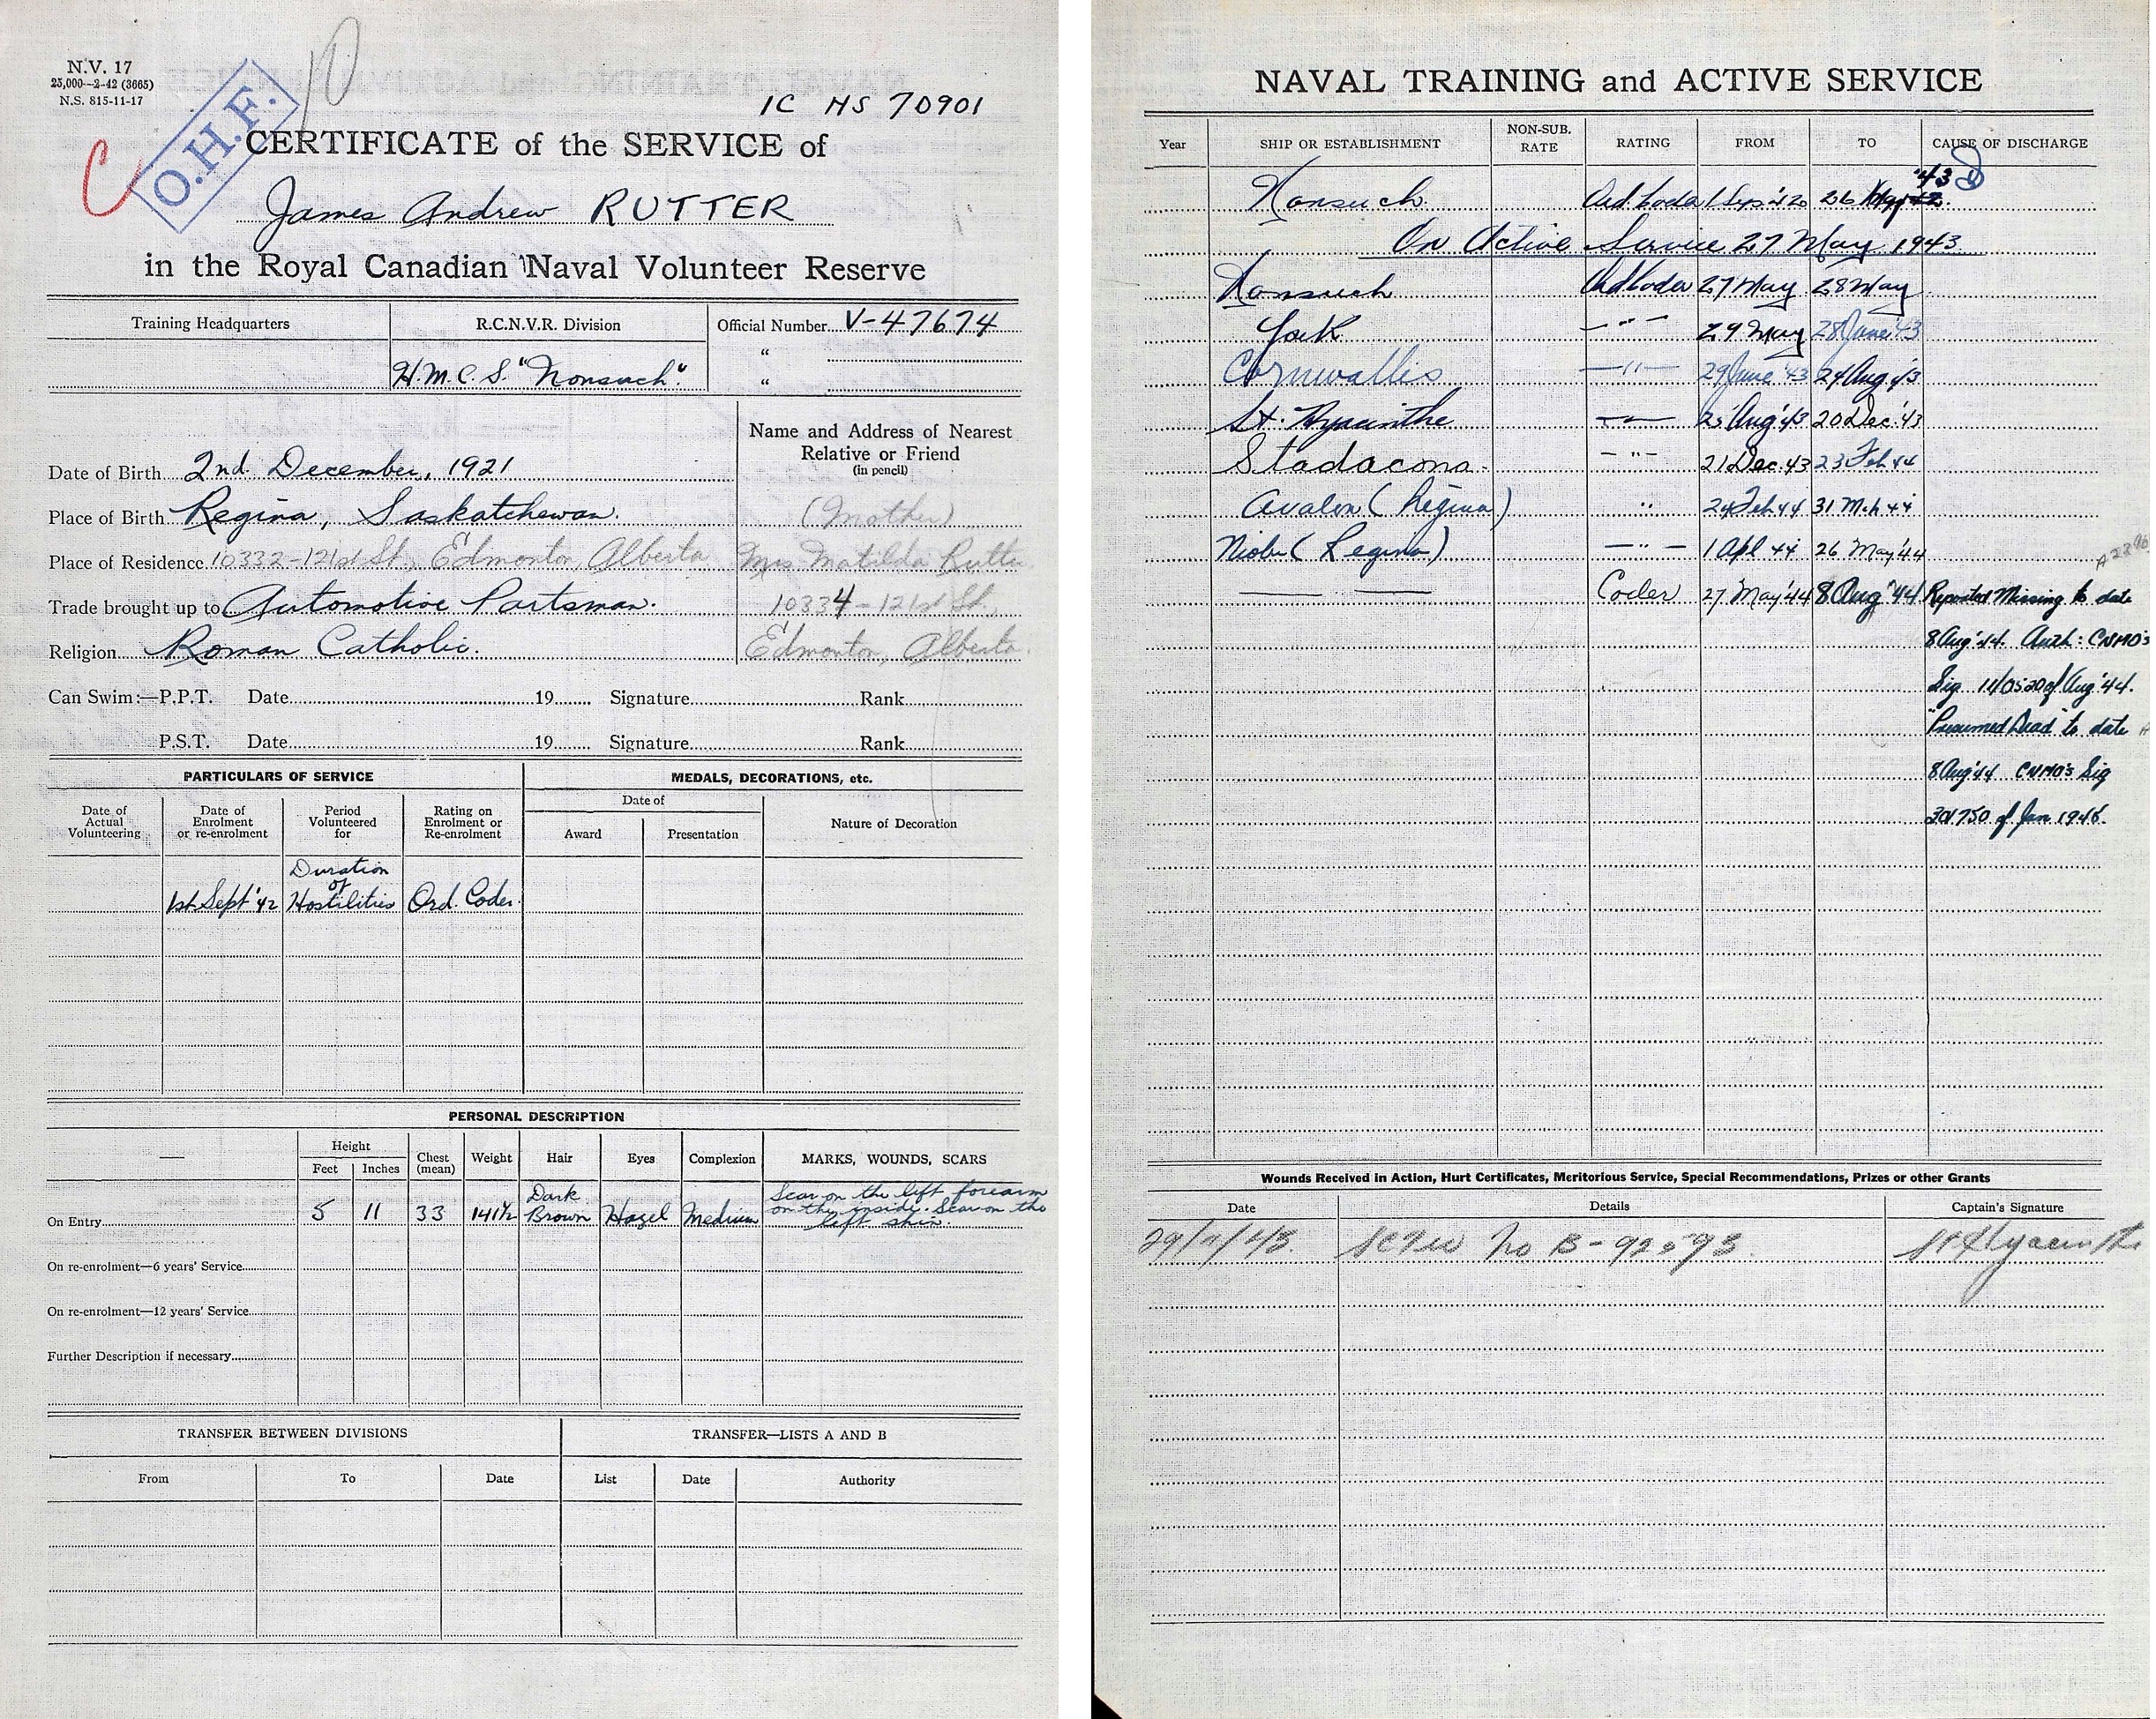 N.V. 17
25,000—2-42 (3665)
N.S. 815-11-17
O.H.F.
C
1C HS 70901
CERTIFICATE of the SERVICE of
James Andrew RUTTER
in the Royal Canadian Naval Volunteer Reserve
Training Headquarters R.C.N.V.R. Division Official Number V-47674
H.M.C.S. "Nonsuch" "
"
Name and Address of Nearest Relative or Friend (in pencil)
Date of Birth 2nd December, 1921
Place of Birth Regina, Saskatchewan. (Mother)
Place of Residence 10332-121st St., Edmonton, Alberta Mrs Matilda Rutter
Trade brought up to Automotive Partsman. 10334-121st St.
Religion Roman Catholic. Edmonton, Alberta.
Can Swim:—P.P.T. Date 19 Signature Rank
P.S.T. Date 19 Signature Rank
PARTICULARS OF SERVICE MEDALS, DECORATIONS, etc.
Date of Actual Volunteering Date of Enrolment or re-enrolment Period Volunteered for Rating on Enrolment or Re-enrolment Date of Award Presentation Nature of Decoration
1st Sept '42 Duration of Hostilities Ord. Coder.
PERSONAL DESCRIPTION
— Height Feet Inches Chest (mean) Weight Hair Eyes Complexion MARKS, WOUNDS, SCARS
On Entry 5 11 33 141½ Dark Brown Hazel Medium Scar on the left forearm on the inside. Scar on the left shin.
On re-enrolment—6 years' Service
On re-enrolment—12 years' Service
Further Description if necessary
TRANSFER BETWEEN DIVISIONS TRANSFER—LISTS A AND B
From To Date List Date Authority
NAVAL TRAINING and ACTIVE SERVICE
Year SHIP OR ESTABLISHMENT NON-SUB. RATE RATING FROM TO CAUSE OF DISCHARGE
Nonsuch Ord Coder 1 Sept '42 26 May '43
On Active Service 27 May 1943
Nonsuch Ord Coder 27 May 28 May
York —"— 29 May 28 June '43
Cornwallis —"— 29 June '43 24 Aug '43
St. Hyacinthe —"— 25 Aug '43 20 Dec. '43
Stadacona —"— 21 Dec. 43 23 Feb 44
Avalon (Regina) " 24 Feb 44 31 Mch 44
Niobe (Regina) —"— 1 Apl 44 26 May '44
— — Coder 27 May '44 8 Aug '44 Reported Missing to date
8 Aug '44. Auth: CNMO's
Sig 110520 of Aug '44.
"Presumed Dead" to date
8 Aug '44 CNMO's Sig
301750 of Jan 1945.
Wounds Received in Action, Hurt Certificates, Meritorious Service, Special Recommendations, Prizes or other Grants
Date Details Captain's Signature
No B-92593 St Hyacinthe